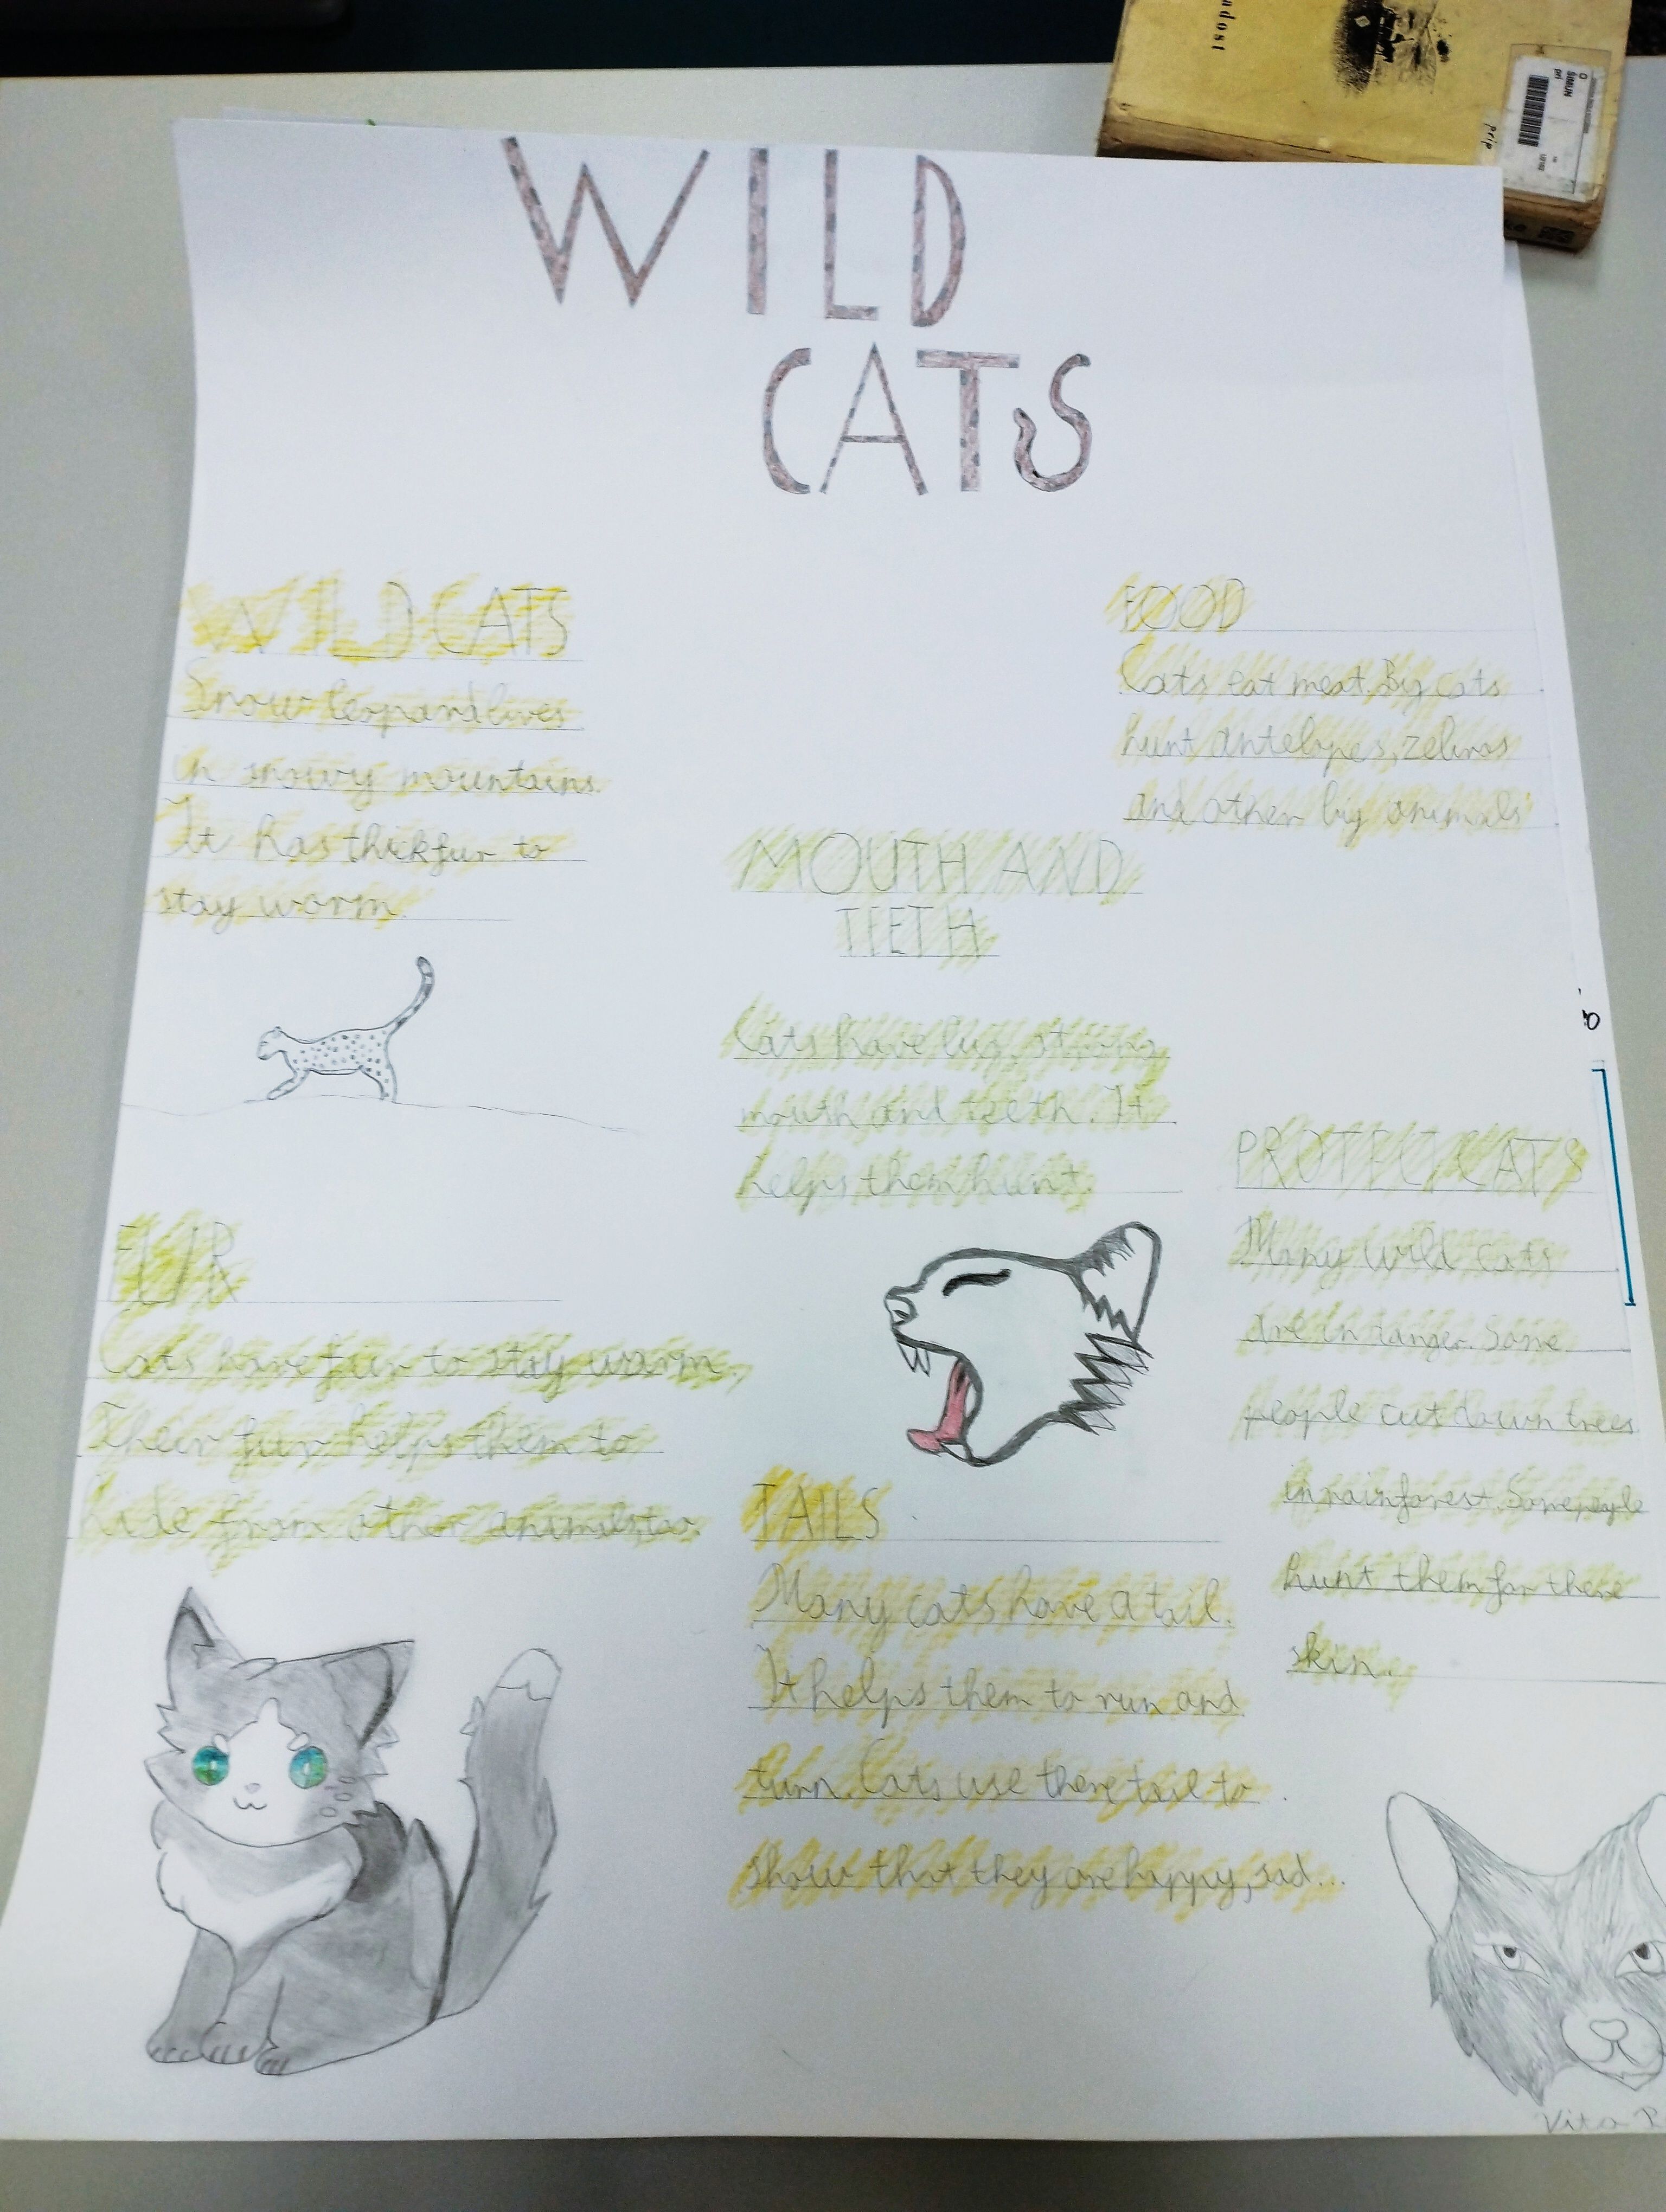 adost
ŠIMUN
pri
prip
WILD
CATS
WILD CATS
Snow leopard lives
in snowy mountains.
It has thick fur to
stay worm.
FOOD
Cats eat meat. Big cats
hunt antelopes, zebras
and other big animals
MOUTH AND
TEETH
Cats have big, strong
mouth and teeth. It
helps them hunt.
PROTECT CATS
Many wild cats
are in danger. Some
people cut down trees
in rainforest. Some people
hunt them for there
skin.
FUR
Cats have fur to stay warm.
Their fur helps them to
hide from other animals, too.
TAILS
Many cats have a tail.
It helps them to run and
turn. Cats use there tail to
show that they are happy, sad...
Vita